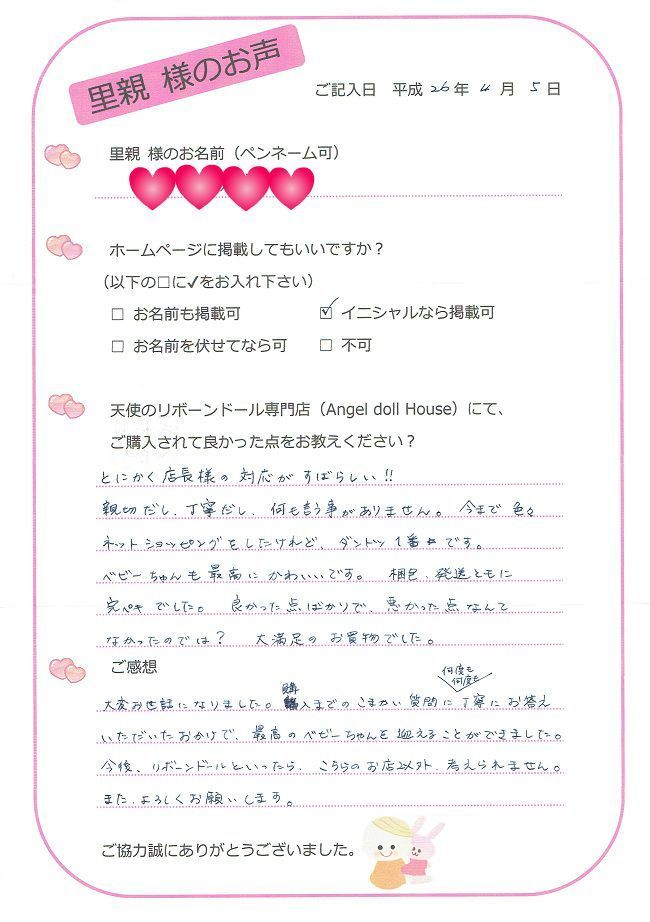 里親 様のお声
ご記入日 平成 26 年 4 月 5 日
里親 様のお名前（ペンネーム可）
ホームページに掲載してもいいですか？
（以下の□に✓をお入れ下さい）
□ お名前も掲載可 ☑ イニシャルなら掲載可
□ お名前を伏せてなら可 □ 不可
天使のリボーンドール専門店（Angel doll House）にて、
ご購入されて良かった点をお教えください？
とにかく店長様の対応がすばらしい!!
親切だし、丁寧だし、何も言う事がありません。今まで色々
ネットショッピングをしたけれど、ダントツ1番です。
ベビーちゃんも最高にかわいいです。梱包、発送ともに
完ペキでした。良かった点ばかりで、悪かった点なんて
なかったのでは？ 大満足のお買物でした。
ご感想
何度も
何度も
大変お世話になりました。購入までのこまかい質問に丁寧にお答え
いただいたおかげで、最高のベビーちゃんを迎えることができました。
今後、リボーンドールといったら、こちらのお店以外、考えられません。
また、よろしくお願いします。
ご協力誠にありがとうございました。